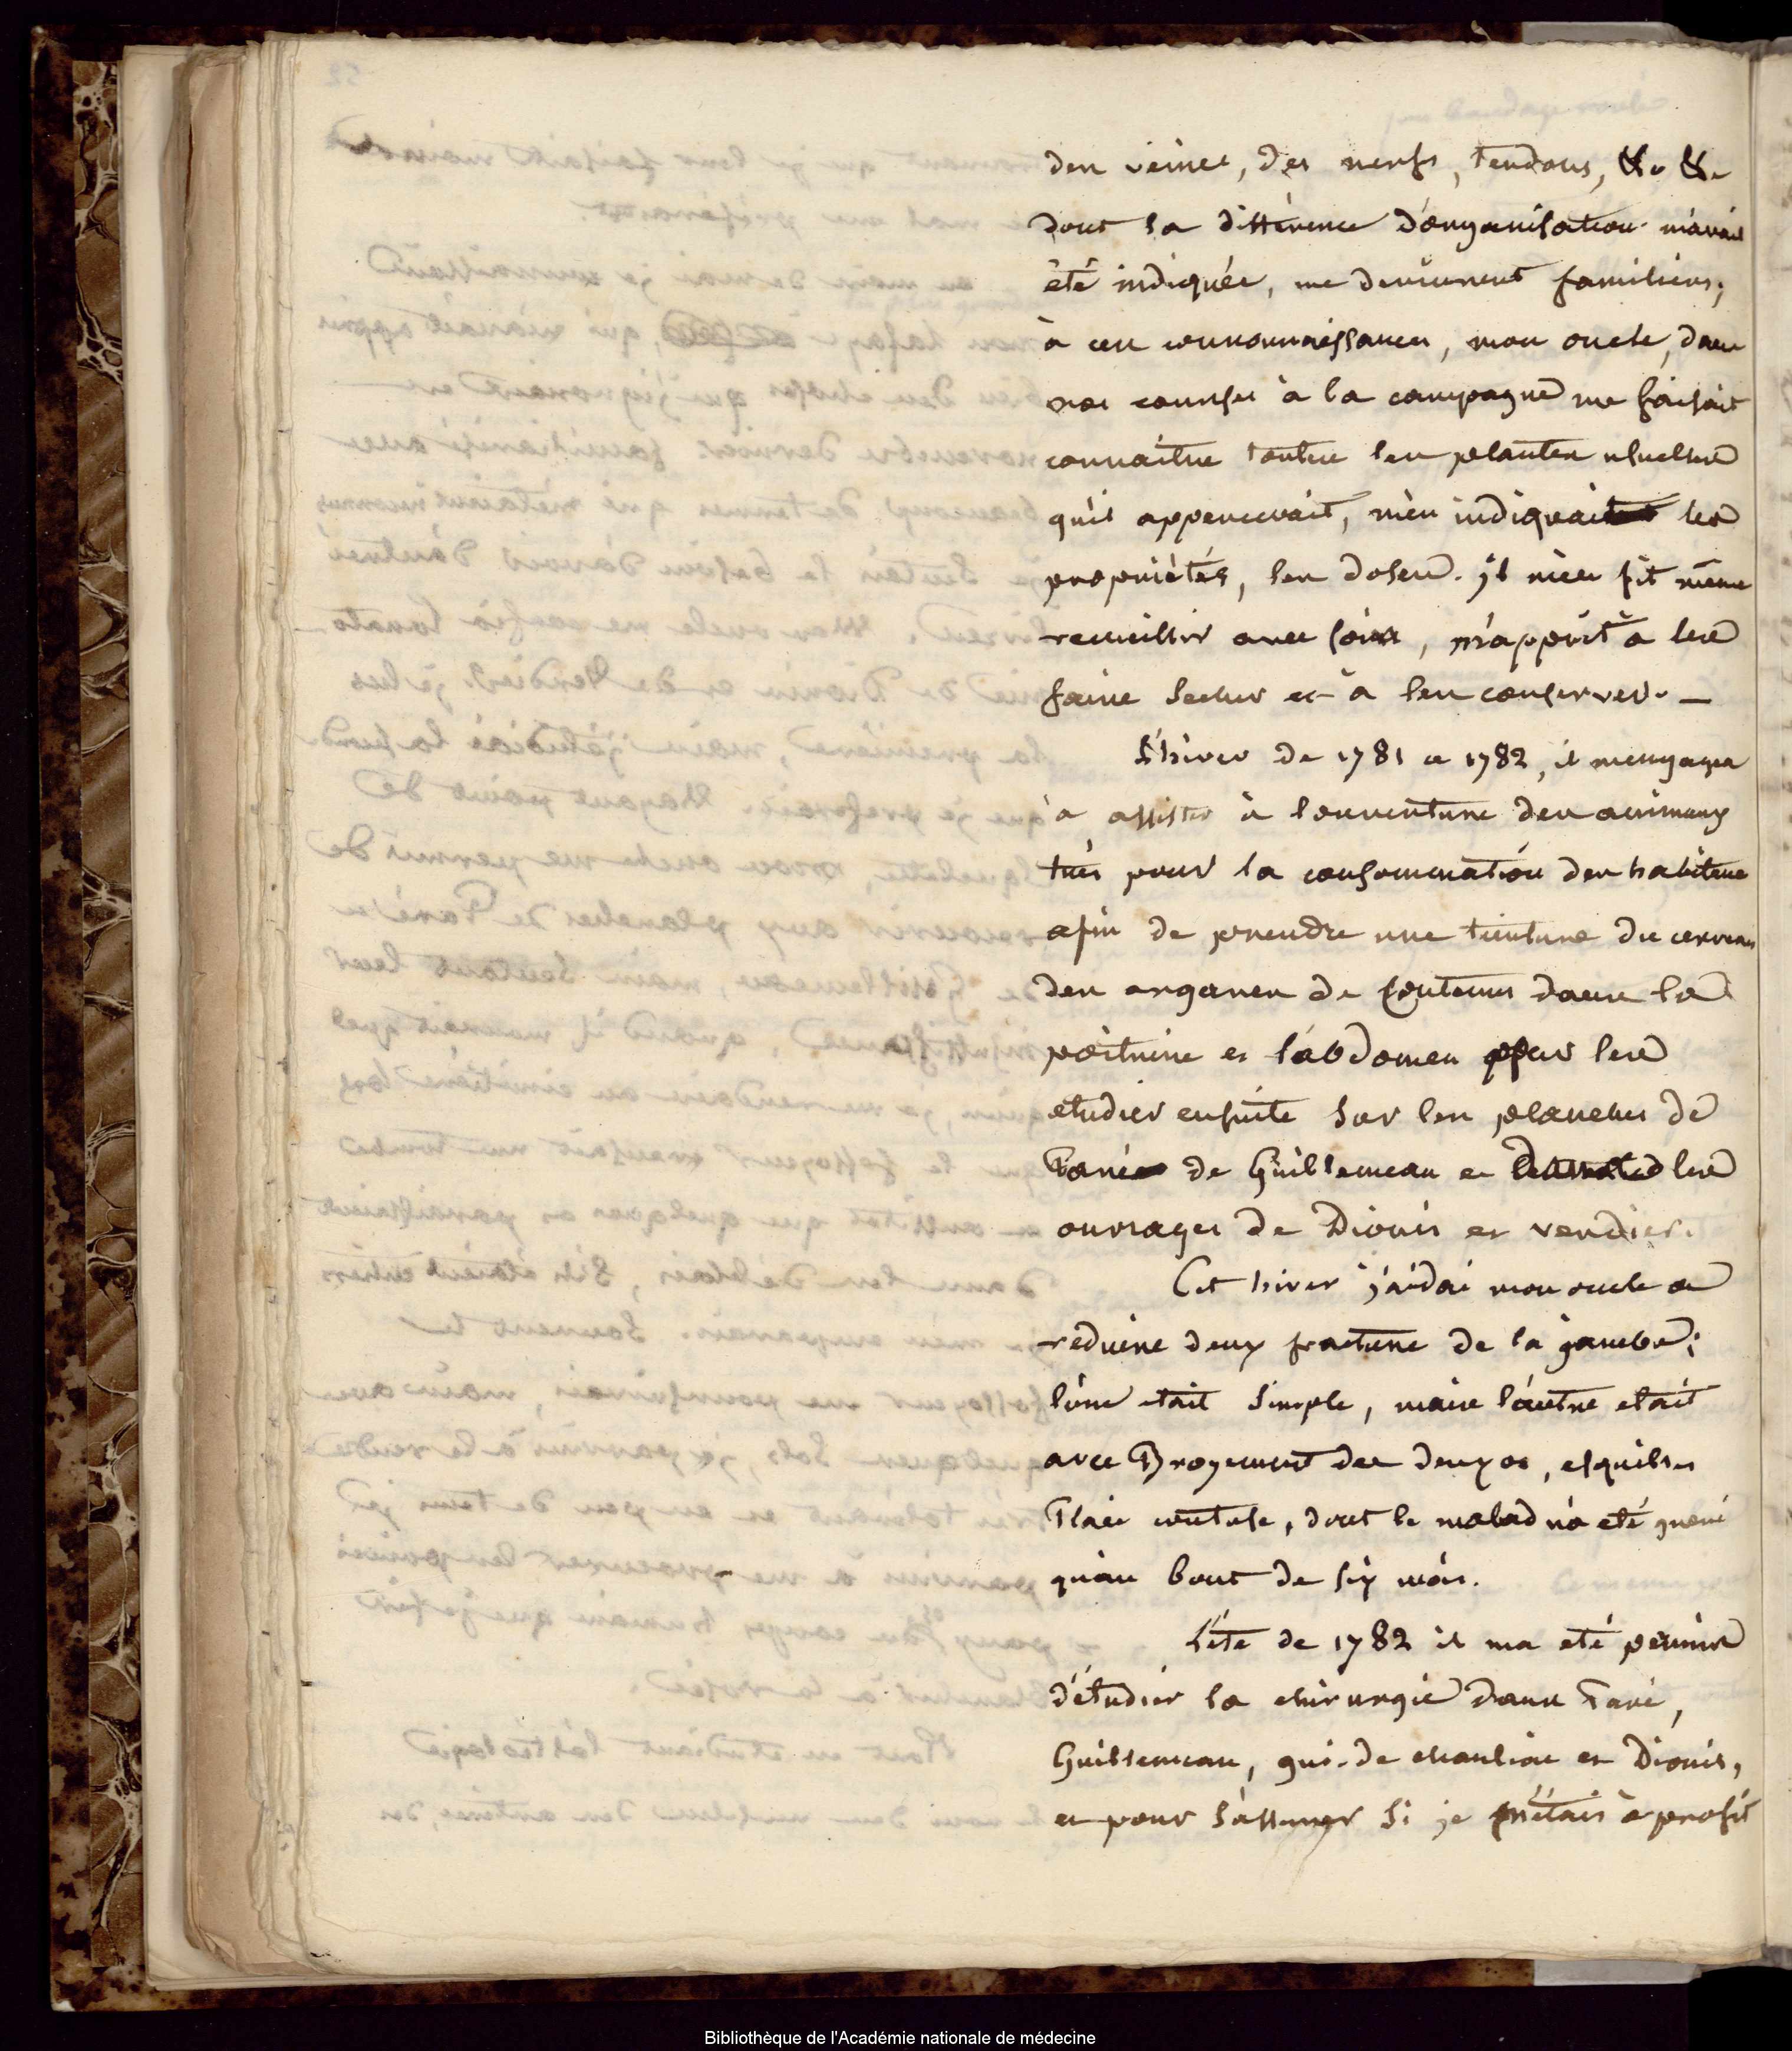 des veines, des nerfs, tendons, &c &c
dont la différence d'organisation m'avait
été indiquée, me devinrent familiers;
à ces connonnaissances, mon oncle, dans
nos courses à la campagne me faisait
connaître toutes les plantes usuelles
qu'il appercevait, m'en indiquait les
propriétés, les doses. il m'en fit même
recueillir avec soin, m'apprit à les
faire secher et à les conserver. —
L'hiver de 1781 a 1782, il m'engagea
a assister à l'ouverture des animaux
tués pour la consommation des habitans
afin de prendre une tinture du cerveau
des organes de contenus dans la
poitrine et l'abdomen pour les
etudier ensuite sur les planches de
Paré de Guillemeau et les
ouvrages de Dionis et verdier.
Cet hiver j'aidai mon oncle a
reduire deux fracture de la jambe;
l'une etait simple, mais l'autre etait
avec Broyement des deux os, esquilles
Plaie contuse, dont le malad n'a eté guéri
qu'au bout de six mois.
L'été de 1782 il ma eté permis
d'étudier la chirurgie dans Paré,
Guillemeau, gui-de chauliac et Dionis,
et pour s'assurer si je mettais à profit
Bibliothèque de l'Académie nationale de médecine